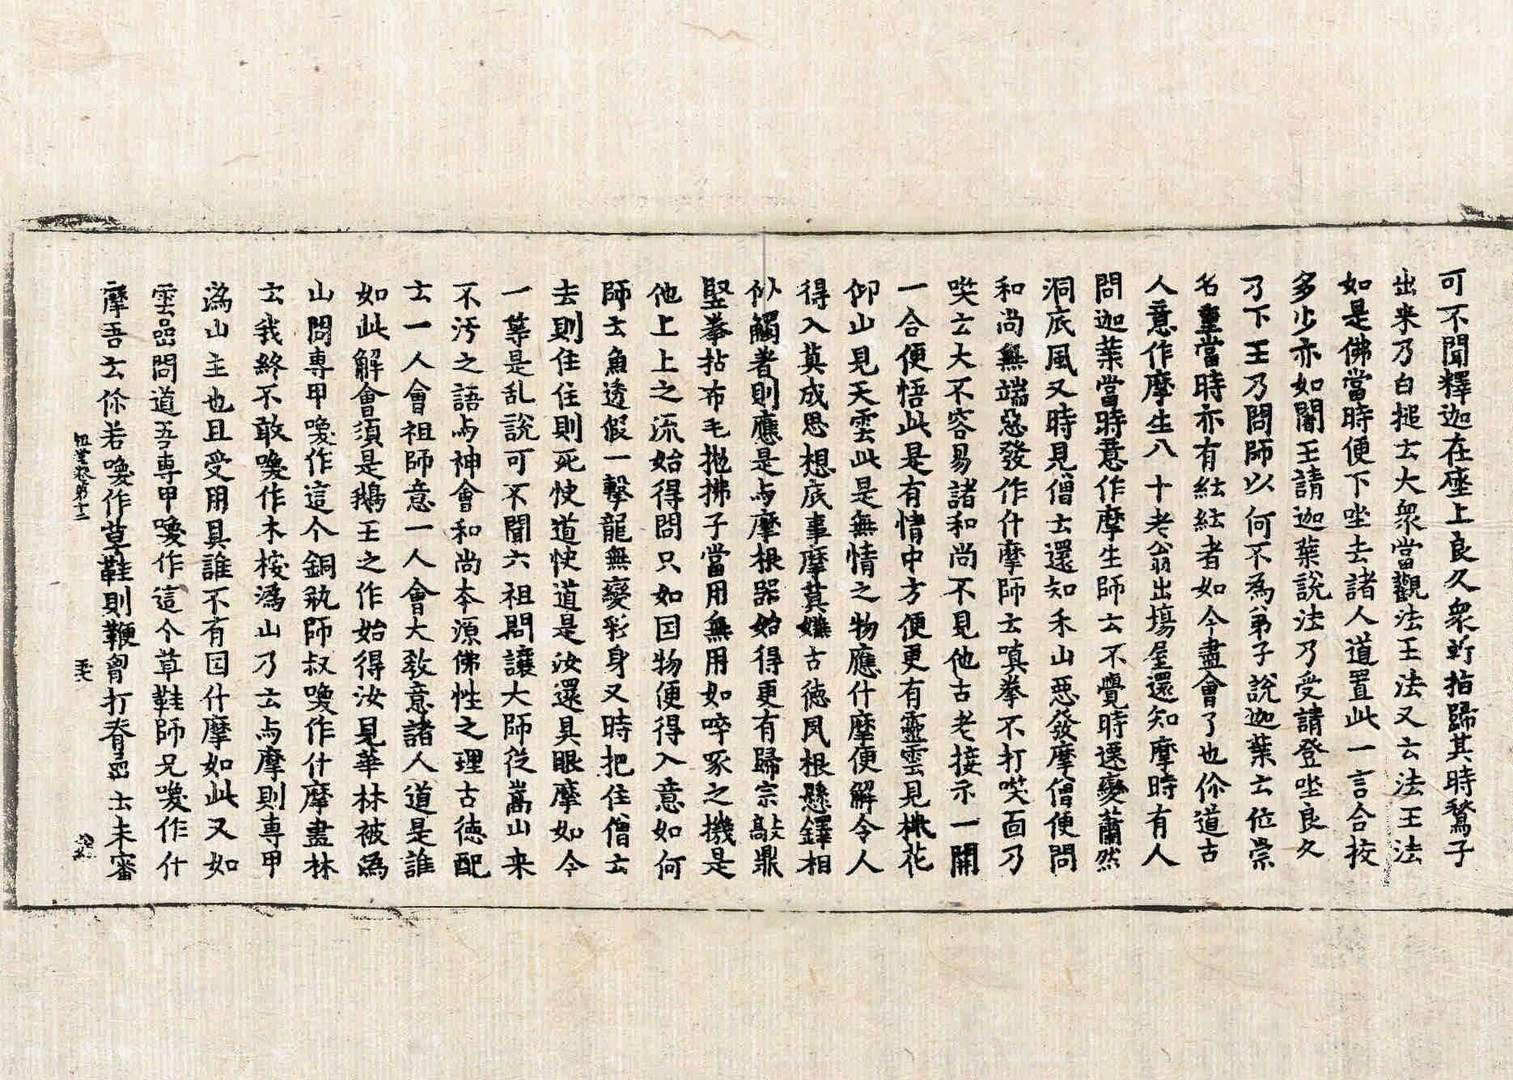 可不聞釋迦在座上良久衆所指歸其時鶖子
出来乃白搥云大衆當觀法王法又云法王法
如是佛當時便下坐去諸人道置此一言合挍
多少亦如闍王請迦葉說法乃受請登坐良久
乃下王乃問師以何不為弟子說迦葉云位崇
名重當時亦有紜紜者如今盡會了也你道古
人意作摩生八十老翁出塲屋還知摩時有人
問迦葉當時意作摩生師云不覺時遷變蕭然
洞底風又時見僧云還知禾山惡發摩僧便問
和尚無端惡發作什摩師云嗔拳不打唉面乃
唉云大不容易諸和尚不見他古老接示一開
一合便悟此是有情中方便更有靈雲見桃花
仰山見天雲此是無情之物應什摩便解令人
得入莫成思想底事摩莫嫌古徳風根懸鐸相
似觸者則應是与摩根器始得更有歸宗敲鼎
竪拳拈布毛抛拂子當用無用如啐啄之機是
他上上之流始得問只如囙物便得入意如何
師云魚透假一擊龍無變彩身又時把住僧云
去則住住則死快道快道是汝還具眼摩如今
一等是乱說可不聞六祖問讓大師従嵩山来
不汚之語与神會和尚本源佛性之理古徳配
云一人會祖師意一人會大教意諸人道是誰
如此解會須是鵝王之作始得汝見華林被為
山問専甲喚作這个銅瓶師叔喚作什摩盡林
云我終不敢喚作木𣔻溈山乃云与摩則専甲
溈山主也且受用具誰不有囙什摩如此又如
雲嵒問道吾専甲喚作這个草鞋師兄喚作什
摩吾云你若喚作草鞋則鞭𦙄打脊嵒云未審
祖堂卷第十二